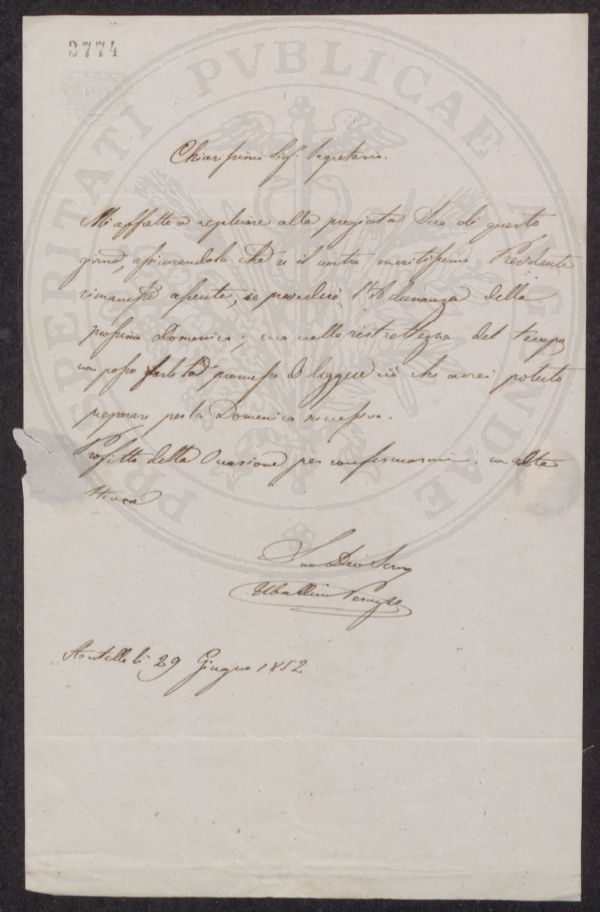 2774
PROSPERITATI PVBLICAE AVGENDAE
Chiarissimo Sigr. Segretario.
Mi affretto a replicare alla pregiata Sua di questo
giorno, assicurandola che se il nostro meritissimo Presidente
rimanesse assente, io presiederò l'Adunanza della
prossima Domenica; ma nella ristrettezza del tempo,
non posso farle promessa di leggere ciò che avrei potuto
preparare per la Domenica successiva.
Profitto della Occasione per confermarmi con alta
stima
Suo Devo Servo
Ubaldino Peruzzi
Antella li 29 Giugno 1852